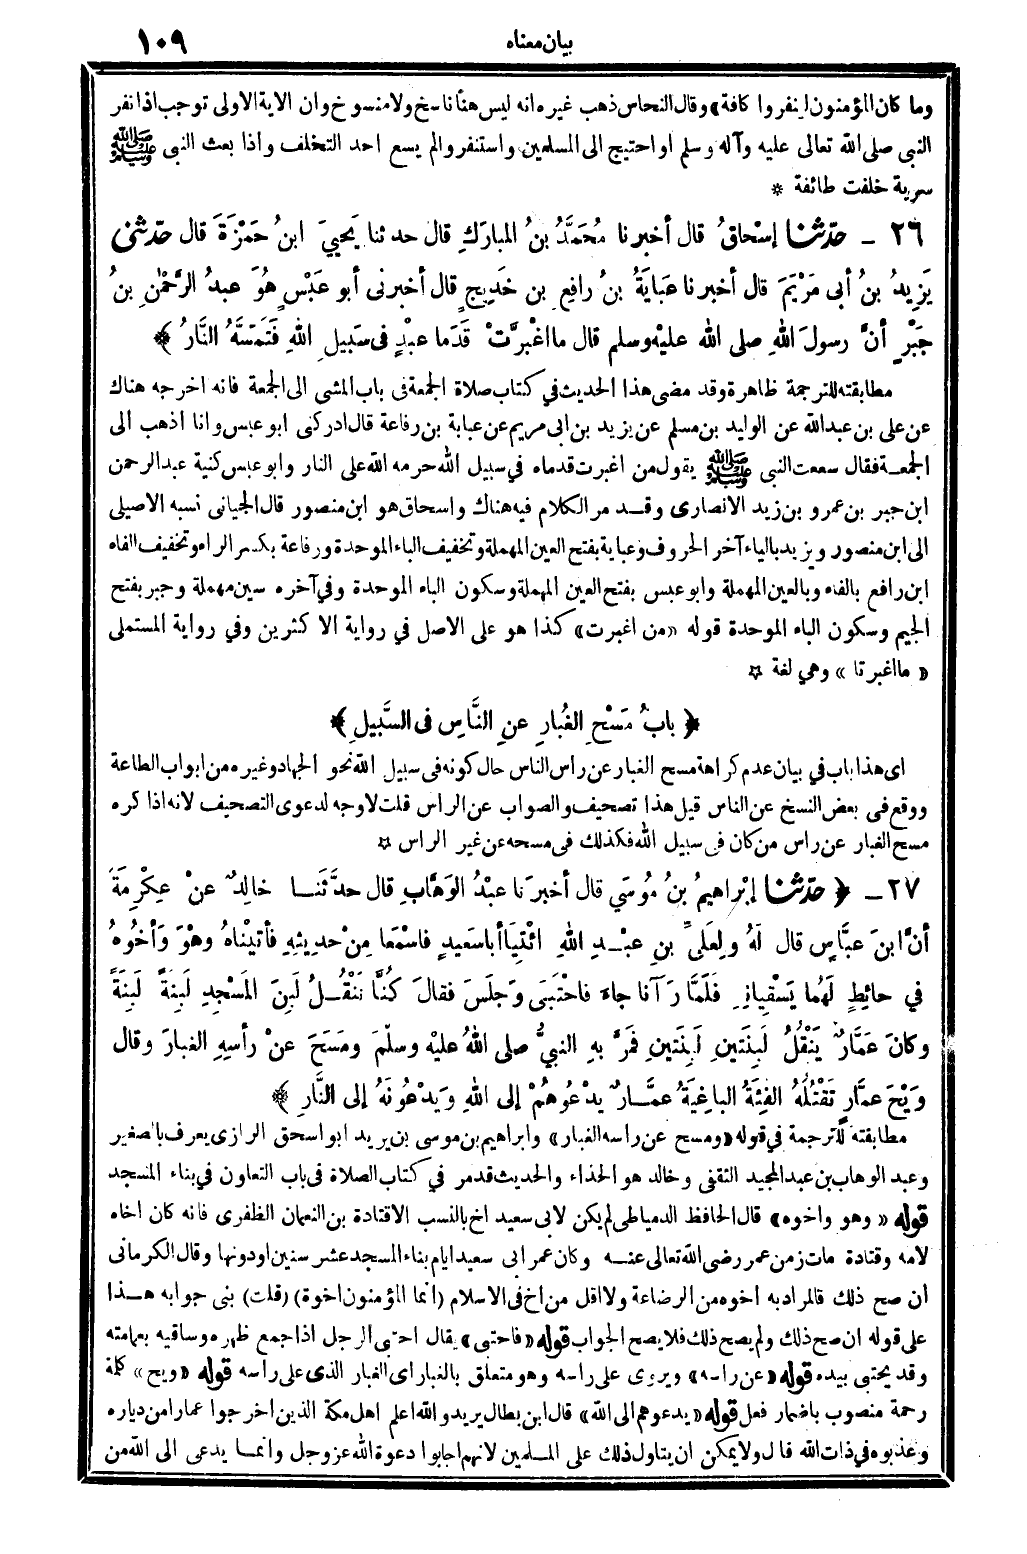 بيان معناه ١٠٩
وما كان المؤمنون لينفروا كافة) وقال النحاس ذهب غيره انه ليس هنا ناسخ ولا منسوخ وان الاية الاولى توجب اذا نفر
النبى صلى الله تعالى عليه وآله وسلم او احتيج الى المسلمين واستنفروا لم يسع احد التخلف واذا بعث النبى ﷺ
سرية خلفت طائفة *
٢٦ ـ حدّثنا إسْحاقُ قال أخبرنا مُحَمَّدُ بنُ المبارَكِ قال حدثنا يَحييَ ابنُ حَمْزَةَ قال حدّثنى
يَزِيدُ بنُ أبى مَرْيَمَ قال أخبرنا عَبايَةُ بنُ رافِعِ بن خَدِيجٍ قال أخبرنى أبو عَبْسٍ هُوَ عبدُ الرَّحْمٰنِ بنُ
جَبْرٍ أنَّ رسولَ اللهِ صلى الله عليْه وسلم قال ما اغْبرَّتْ قَدَما عبْدٍ فى سَبيلِ اللهِ فَتَمَسَّهُ النَّارُ ﴾
مطابقته للترجمة ظاهرة وقد مضى هذا الحديث في كتاب صلاة الجمعة فى باب المشى الى الجمعة فانه اخرجه هناك
عن على بن عبد الله عن الوليد بن مسلم عن يزيد بن ابى مريم عن عباية بن رفاعة قال ادركنى ابو عبس وانا اذهب الى
الجمعة فقال سمعت النبى ﷺ يقول من اغبرت قدماه في سبيل الله حرمه الله على النار وابو عبس كنية عبد الرحمن
ابن جبر بن عمرو بن زيد الانصارى وقد مر الكلام فيه هناك واسحاق هو ابن منصور قال الجيانى نسبه الاصيلى
الى ابن منصور ويزيد بالياء آخر الحروف وعباية بفتح العين المهملة وتخفيف الباء الموحدة ورفاعة بكسر الراء وتخفيف الفاء
ابن رافع بالفاء وبالعين المهملة وابو عبس بفتح العين المهملة وسكون الباء الموحدة وفي آخره سين مهملة وجبر بفتح
الجيم وسكون الباء الموحدة قوله «من اغبرت» كذا هو على الاصل في رواية الاكثرين وفي رواية المستملى
«ما اغبرتا» وهي لغة ✡
﴿ بابُ مَسْحِ الغُبارِ عنِ النَّاسِ فى السَّبيلِ ﴾
اى هذا باب في بيان عدم كراهة مسح الغبار عن راس الناس حال كونه فى سبيل الله نحو الجهاد وغيره من ابواب الطاعة
ووقع فى بعض النسخ عن الناس قيل هذا تصحيف والصواب عن الراس قلت لا وجه لدعوى التصحيف لانه اذا كره
مسح الغبار عن راس من كان فى سبيل الله فكذلك فى مسحه عن غير الراس ✡
٢٧ ـ ﴿ حدّثنا إبْراهيمُ بنُ مُوسَي قال أخبرَنا عبْدُ الوَهَّابِ قال حدَّثَنَا خالِدٌ عنْ عِكْرِمَةَ
أنَّ ابنَ عبَّاسٍ قال لَهُ ولِعَلىِّ بنِ عبْدِ اللهِ ائْتِيَا أبا سَعيدٍ فاسْمَعا مِنْ حديثِهِ فأتيْناهُ وهْوَ وَأخُوهُ
في حائطٍ لَهُما يَسْقِيانِهِ فَلَمَّا رَآنا جاءَ فاحْتَبَى وَجلَسَ فقالَ كُنَّا نَنْقُلُ لَبِنَ المَسْجِدِ لَبِنَةً لَبِنَةً
وكانَ عَمَّارٌ يَنْقُلُ لَبِنَتَينِ لَبِنَتَينِ فمَرَّ بهِ النبيُّ صلى اللهُ عليْه وسلّمَ ومَسَحَ عنْ رأسِهِ الغبارَ وقال
وَيْحَ عمَّارٍ تَقْتُلُهُ الفِئَةُ الباغِيَةُ عمَّارٌ يدْعُوهُمْ إلى اللهِ وَيدْعُونَهُ إلى النَّارِ ﴾
مطابقته للترجمة في قوله «ومسح عن راسه الغبار» وابراهيم بن موسى بن يزيد ابو اسحق الرازى يعرف بالصغير
وعبد الوهاب بن عبد المجيد الثقفى وخالد هو الحذاء والحديث قد مر في كتاب الصلاة فى باب التعاون في بناء المسجد
قوله «وهو واخوه» قال الحافظ الدمياطى لم يكن لابى سعيد اخ بالنسب الا قتادة بن النعمان الظفرى فانه كان اخاه
لامه وقتادة مات زمن عمر رضى الله تعالى عنه وكان عمر ابى سعيد ايام بناء المسجد عشر سنين او دونها وقال الكرمانى
ان صح ذلك فالمراد به اخوه من الرضاعة ولا اقل من اخ فى الاسلام (انما المؤمنون اخوة) (قلت) بنى جوابه هذا
على قوله ان صح ذلك ولم يصح ذلك فلا يصح الجواب قوله «فاحتبى» يقال احتبى الرجل اذا جمع ظهره وساقيه بعمامته
وقد يحتبى بيده قوله «عن راسه» ويروى على راسه وهو متعلق بالغبار اى الغبار الذى على راسه قوله «ويح» كلمة
رحمة منصوب باضمار فعل قوله «يدعوهم الى الله» قال ابن بطال يريد والله اعلم اهل مكة الذين اخرجوا عمارا من دياره
وعذبوه في ذات الله قال ولا يمكن ان يتاول ذلك على المسلمين لانهم اجابوا دعوة الله عز وجل وانما يدعى الى الله من